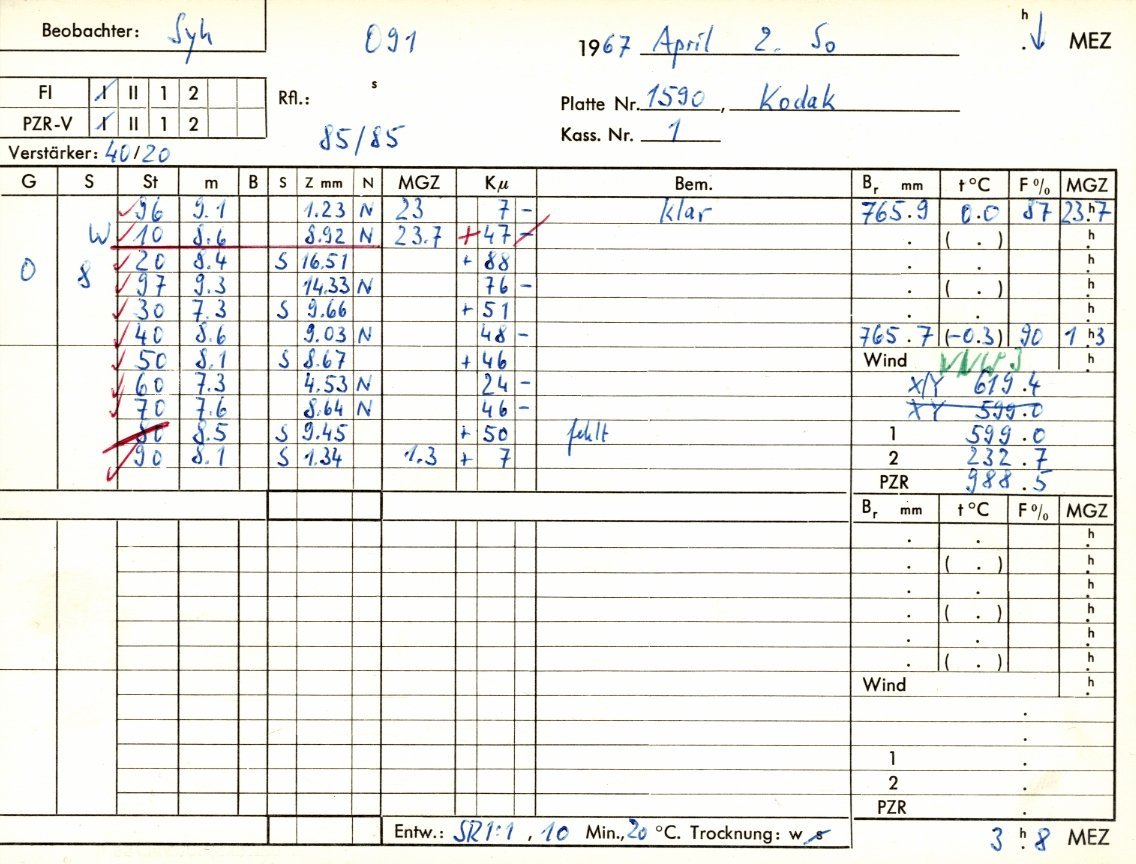 Beobachter: Syh 091 1967 April 2. So h . ↓ MEZ
FI I II 1 2 Rfl.: s Platte Nr. 1590, Kodak
PZR-V I II 1 2 85/85 Kass. Nr. 1
Verstärker: 40/20
G S St m B S Z mm N MGZ Kμ Bem. Br mm t°C F% MGZ
96 9.1 1.23 N 23 7 - klar 765.9 0.0 87 23h7
W 10 8.6 8.92 N 23.7 + 47 - . ( . ) h
0 8 20 8.4 S 16.51 + 88 . . h
97 9.3 14.33 N 76 - . ( . ) h
30 7.3 S 9.66 + 51 . . h
40 8.6 9.03 N 48 - 765.7 (-0.3) 90 1h3
50 8.1 S 8.67 + 46 Wind h
60 7.3 4.53 N 24 - X/Y 619.4
70 7.6 8.64 N 46 - XY 599.0
80 8.5 S 9.45 + 50 fehlt 1 599.0
90 8.1 S 1.34 1.3 + 7 2 232.7
PZR 988.5
Br mm t°C F% MGZ
. . h
. ( . ) h
. . h
. ( . ) h
. . h
. ( . ) h
Wind h
.
.
1 .
2 .
PZR .
Entw.: SR1:1, 10 Min., 20 °C. Trocknung: w s 3 h.8 MEZ